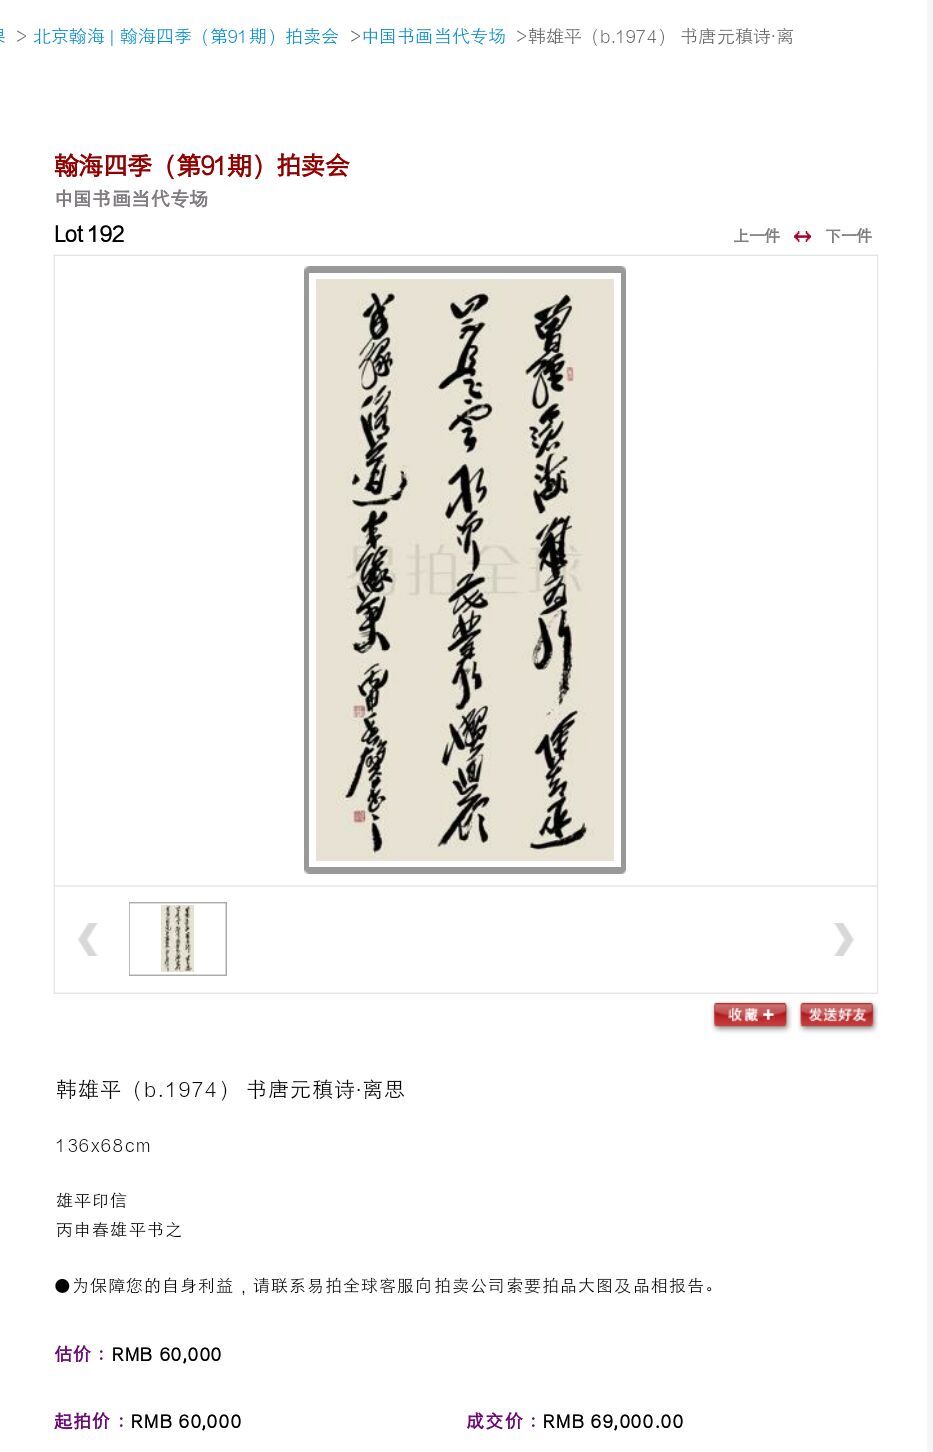 果 > 北京翰海 | 翰海四季（第91期）拍卖会 >中国书画当代专场 >韩雄平（b.1974） 书唐元稹诗·离
翰海四季（第91期）拍卖会
中国书画当代专场
Lot 192
上一件 下一件
曾经沧海难为水
除却巫山不是云
取次花丛懒回顾
半缘修道半缘君
易拍全球
收藏
发送好友
韩雄平（b.1974） 书唐元稹诗·离思
136x68cm
雄平印信
丙申春雄平书之
●为保障您的自身利益，请联系易拍全球客服向拍卖公司索要拍品大图及品相报告。
估价：RMB 60,000
起拍价：RMB 60,000
成交价：RMB 69,000.00